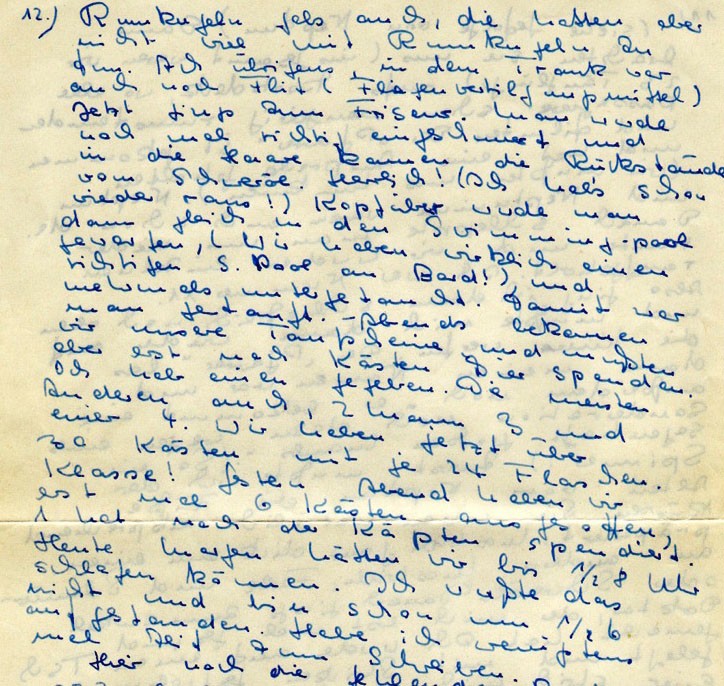 12.) Rumkugeln gabs auch, die hatten aber
nicht viel mit Rumkugeln zu
tun. Ach übrigens, in dem Trank war
auch noch Flit (Fliegenvertilgungsmittel)
Jetzt gings zum Friseur. Man wurde
noch mal richtig eingeschmiert und
in die Haare kamen die Rückstände
vom Schweröl. Herrlich! (Ich habs schon
wieder raus!) Kopfüber wurde man
dann gleich in den Swimming-pool
geworfen, (Wir haben wirklich einen
richtigen S. Pool an Bord!) und
mehrmals untergetaucht. Damit war
man getauft. Abends bekamen
wir unsere Taufscheine und mußten
aber erst noch Kästen Bier spenden.
Ich hab einen gegeben. Die meisten
Anderen auch, 2 Mann 3 und
einer 4. Wir haben jetzt über
30 Kästen mit je 24 Flaschen.
Klasse! Gestern Abend haben wir
erst mal 6 Kästen ausgesoffen,
1 hat noch der Käpten spendiert.
Heute morgen hätten wir bis 1/2 8 Uhr
schlafen können. Ich wußte das
nicht und bin schon um 1/2 6
aufgestanden. Habe ich wenigstens
mal Zeit zum Schreiben.
Hier noch die